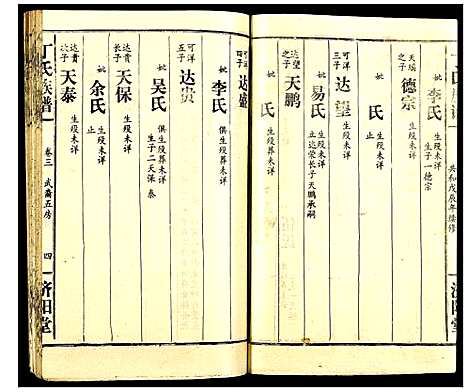 共和戊辰年续修
妣 李氏 生殁未详
生子一德宗
天瑞之子 德宗 生殁未详
妣 氏
可洋三子 达望 生殁未详
妣 易氏 生殁未详
立达荣长子天鹏承嗣
达望之子 天鹏 生殁未详
妣 氏
可洋四子 达盛
妣 李氏 俱生殁葬未详
可洋五子 达贵
妣 吴氏 俱生殁葬未详
生子二天保 泰
达贵长子 天保 生殁未详
妣 余氏 生殁未详
止
达贵次子 天泰 生殁未详
丁氏族谱
卷三 武裔五房
四
济阳堂